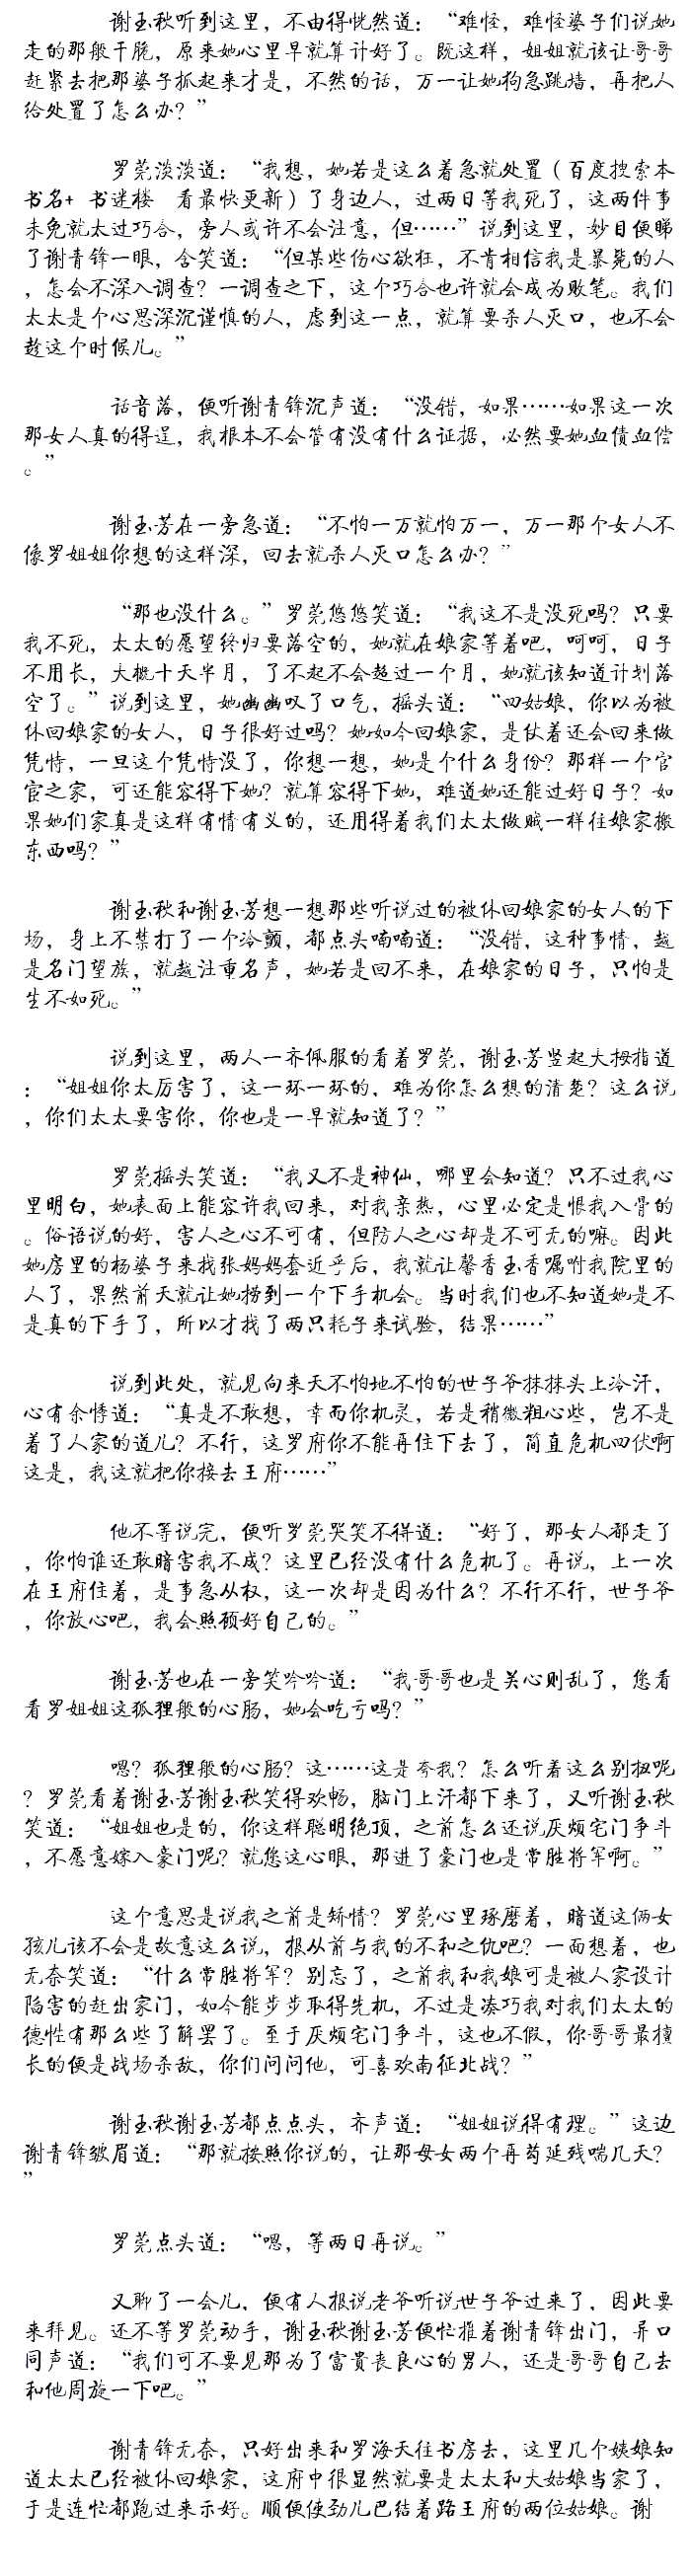 谢玉秋听到这里，不由得恍然道：“难怪，难怪婆子们说她
走的那般干脆，原来她心里早就算计好了。既这样，姐姐就该让哥哥
赶紧去把那婆子抓起来才是，不然的话，万一让她狗急跳墙，再把人
给处置了怎么办？”
罗莞淡淡道：“我想，她若是这么着急就处置（百度搜索本
书名+　书迷楼　看最快更新）了身边人，过两日等我死了，这两件事
未免就太过巧合，旁人或许不会注意，但……”说到这里，妙目便睇
了谢青锋一眼，含笑道：“但某些伤心欲狂，不肯相信我是暴毙的人
，怎会不深入调查？一调查之下，这个巧合也许就会成为败笔。我们
太太是个心思深沉谨慎的人，虑到这一点，就算要杀人灭口，也不会
趁这个时候儿。”
话音落，便听谢青锋沉声道：“没错，如果……如果这一次
那女人真的得逞，我根本不会管有没有什么证据，必然要她血债血偿
。”
谢玉芳在一旁急道：“不怕一万就怕万一，万一那个女人不
像罗姐姐你想的这样深，回去就杀人灭口怎么办？”
“那也没什么。”罗莞悠悠笑道：“我这不是没死吗？只要
我不死，太太的愿望终归要落空的，她就在娘家等着吧，呵呵，日子
不用长，大概十天半月，了不起不会超过一个月，她就该知道计划落
空了。”说到这里，她幽幽叹了口气，摇头道：“四姑娘，你以为被
休回娘家的女人，日子很好过吗？她如今回娘家，是仗着还会回来做
凭恃，一旦这个凭恃没了，你想一想，她是个什么身份？那样一个官
宦之家，可还能容得下她？就算容得下她，难道她还能过好日子？如
果她们家真是这样有情有义的，还用得着我们太太做贼一样往娘家搬
东西吗？”
谢玉秋和谢玉芳想一想那些听说过的被休回娘家的女人的下
场，身上不禁打了一个冷颤，都点头喃喃道：“没错，这种事情，越
是名门望族，就越注重名声，她若是回不来，在娘家的日子，只怕是
生不如死。”
说到这里，两人一齐佩服的看着罗莞，谢玉芳竖起大拇指道
：“姐姐你太厉害了，这一环一环的，难为你怎么想的清楚？这么说
，你们太太要害你，你也是一早就知道了？”
罗莞摇头笑道：“我又不是神仙，哪里会知道？只不过我心
里明白，她表面上能容许我回来，对我亲热，心里必定是恨我入骨的
。俗语说的好，害人之心不可有，但防人之心却是不可无的嘛。因此
她房里的杨婆子来找张妈妈套近乎后，我就让馨香玉香嘱咐我院里的
人了，果然前天就让她捞到一个下手机会。当时我们也不知道她是不
是真的下手了，所以才找了两只耗子来试验，结果……”
说到此处，就见向来天不怕地不怕的世子爷抹抹头上冷汗，
心有余悸道：“真是不敢想，幸而你机灵，若是稍微粗心些，岂不是
着了人家的道儿？不行，这罗府你不能再住下去了，简直危机四伏啊
这是，我这就把你接去王府……”
他不等说完，便听罗莞哭笑不得道：“好了，那女人都走了
，你怕谁还敢暗害我不成？这里已经没有什么危机了。再说，上一次
在王府住着，是事急从权，这一次却是因为什么？不行不行，世子爷
，你放心吧，我会照顾好自己的。”
谢玉芳也在一旁笑吟吟道：“我哥哥也是关心则乱了，您看
看罗姐姐这狐狸般的心肠，她会吃亏吗？”
嗯？狐狸般的心肠？这……这是夸我？怎么听着这么别扭呢
？罗莞看着谢玉芳谢玉秋笑得欢畅，脑门上汗都下来了，又听谢玉秋
笑道：“姐姐也是的，你这样聪明绝顶，之前怎么还说厌烦宅门争斗
，不愿意嫁入豪门呢？就您这心眼，那进了豪门也是常胜将军啊。”
这个意思是说我之前是矫情？罗莞心里琢磨着，暗道这俩女
孩儿该不会是故意这么说，报从前与我的不和之仇吧？一面想着，也
无奈笑道：“什么常胜将军？别忘了，之前我和我娘可是被人家设计
陷害的赶出家门，如今能步步取得先机，不过是凑巧我对我们太太的
德性有那么些了解罢了。至于厌烦宅门争斗，这也不假，你哥哥最擅
长的便是战场杀敌，你们问问他，可喜欢南征北战？”
谢玉秋谢玉芳都点点头，齐声道：“姐姐说得有理。”这边
谢青锋皱眉道：“那就按照你说的，让那母女两个再苟延残喘几天？
”
罗莞点头道：“嗯，等两日再说。”
又聊了一会儿，便有人报说老爷听说世子爷过来了，因此要
来拜见。还不等罗莞动手，谢玉秋谢玉芳便忙推着谢青锋出门，异口
同声道：“我们可不要见那为了富贵丧良心的男人，还是哥哥自己去
和他周旋一下吧。”
谢青锋无奈，只好出来和罗海天往书房去，这里几个姨娘知
道太太已经被休回娘家，这府中很显然就要是太太和大姑娘当家了，
于是连忙都跑过来示好。顺便使劲儿巴结着路王府的两位姑娘。谢